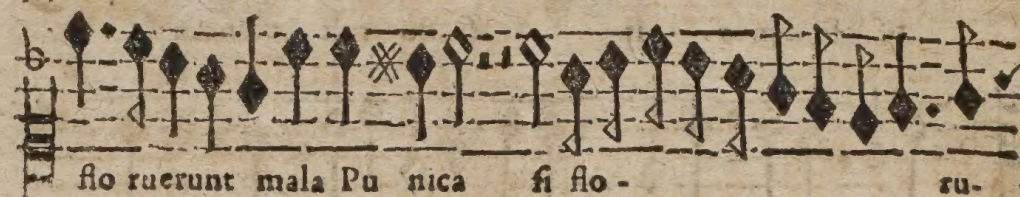 flo ruerunt mala Pu nica si flo - ru-